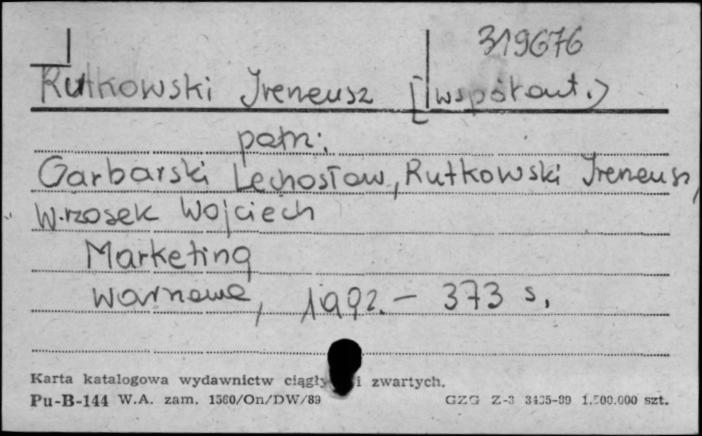 319676
Rutkowski Ireneusz [współaut.>
patrz:
Garbarski Lechosław, Rutkowski Ireneusz,
Wrzosek Wojciech
Marketing
Warszawa, 1992. - 373 s.
Karta katalogowa wydawnictw ciągłych i zwartych.
Pu-B-144 W.A. zam. 1560/On/DW/89 GZG Z-3 3435-99 1.500.000 szt.